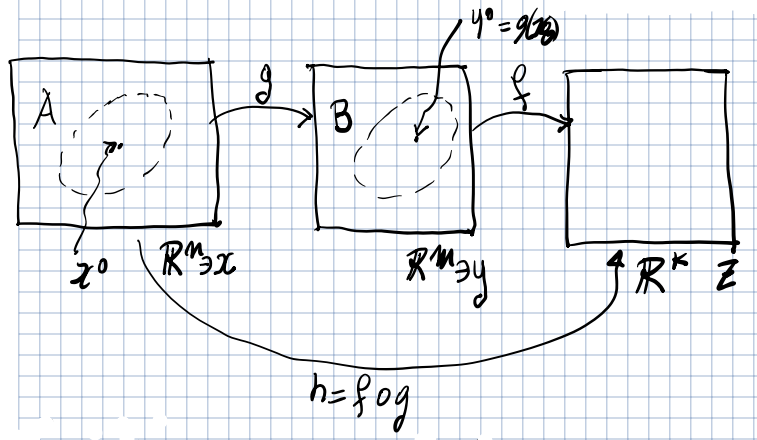 y⁰ = g(x⁰)
g
f
A
B
x⁰
ℝⁿ∋x
ℝᵐ∋y
ℝᵏ
z
h = f∘g